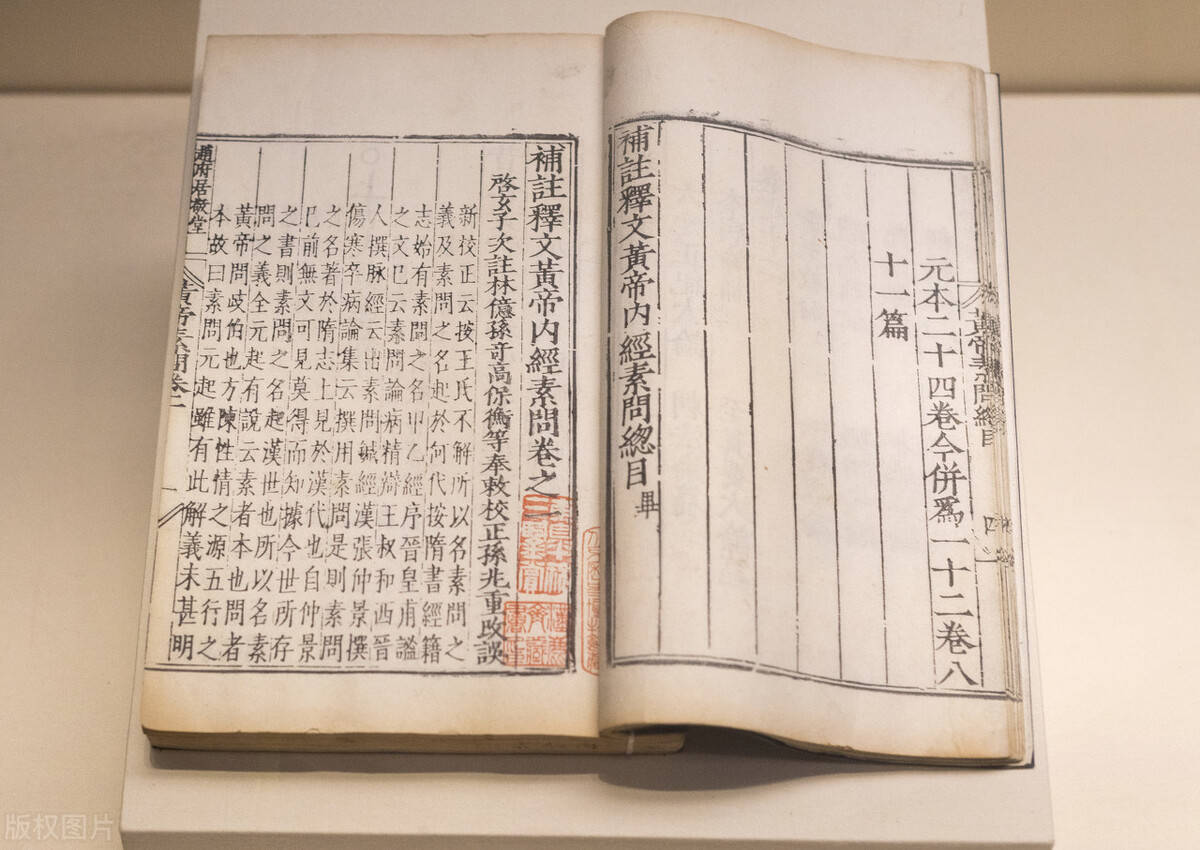 元本二十四卷今併爲一十二卷八
十一篇
補註釋文黃帝內經素問總目畢
黃帝素問總目
四
補註釋文黃帝內經素問卷之一
啓玄子次註林億孫奇高保衡等奉敕校正孫兆重改誤
新校正云按王氏不解所以名素問之
義及素問之名起於何代按隋書經籍
志始有素問之名甲乙經序晉皇甫謐
之文已云素問論病精辯王叔和西晉
人撰脉經云出素問鍼經漢張仲景撰
傷寒卒病論集云撰用素問是則素問
之名著於隋志上見於漢代也自仲景
已前無文可見莫得而知據今世所存
之書則素問之名起漢世也所以名素
問之義全元起有說云素者本也問者
黃帝問歧伯也方陳性情之源五行之
本故曰素問元起雖有此解義未甚明
趙府居敬堂
黃帝素問卷一
版权图片